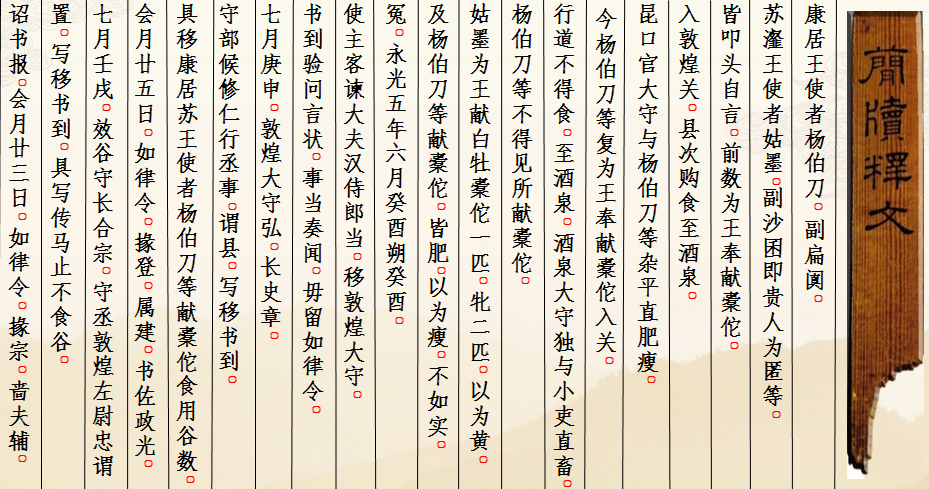 简牍释文
康居王使者杨伯刀。副扁阗。
苏薤王使者姑墨。副沙囷即贵人为匿等。
皆叩头自言。前数为王奉献橐佗。
入敦煌关。县次购食至酒泉。
昆口官大守与杨伯刀等杂平直肥瘦。
今杨伯刀等复为王奉献橐佗入关。
行道不得食。至酒泉。酒泉大守独与小吏直畜。
杨伯刀等不得见所献橐佗。
姑墨为王献白牡橐佗一匹。牝二匹。以为黄。
及杨伯刀等献橐佗。皆肥。以为瘦。不如实。
冤。永光五年六月癸酉朔癸酉。
使主客谏大夫汉侍郎当。移敦煌大守。
书到验问言状。事当奏闻。毋留如律令。
七月庚申。敦煌大守弘。长史章。
守部候修仁行丞事。谓县。写移书到。
具移康居苏王使者杨伯刀等献橐佗食用谷数。
会月廿五日。如律令。掾登。属建。书佐政光。
七月壬戌。效谷守长合宗。守丞敦煌左尉忠谓
置。写移书到。具写传马止不食谷。
诏书报。会月廿三日。如律令。掾宗。啬夫辅。